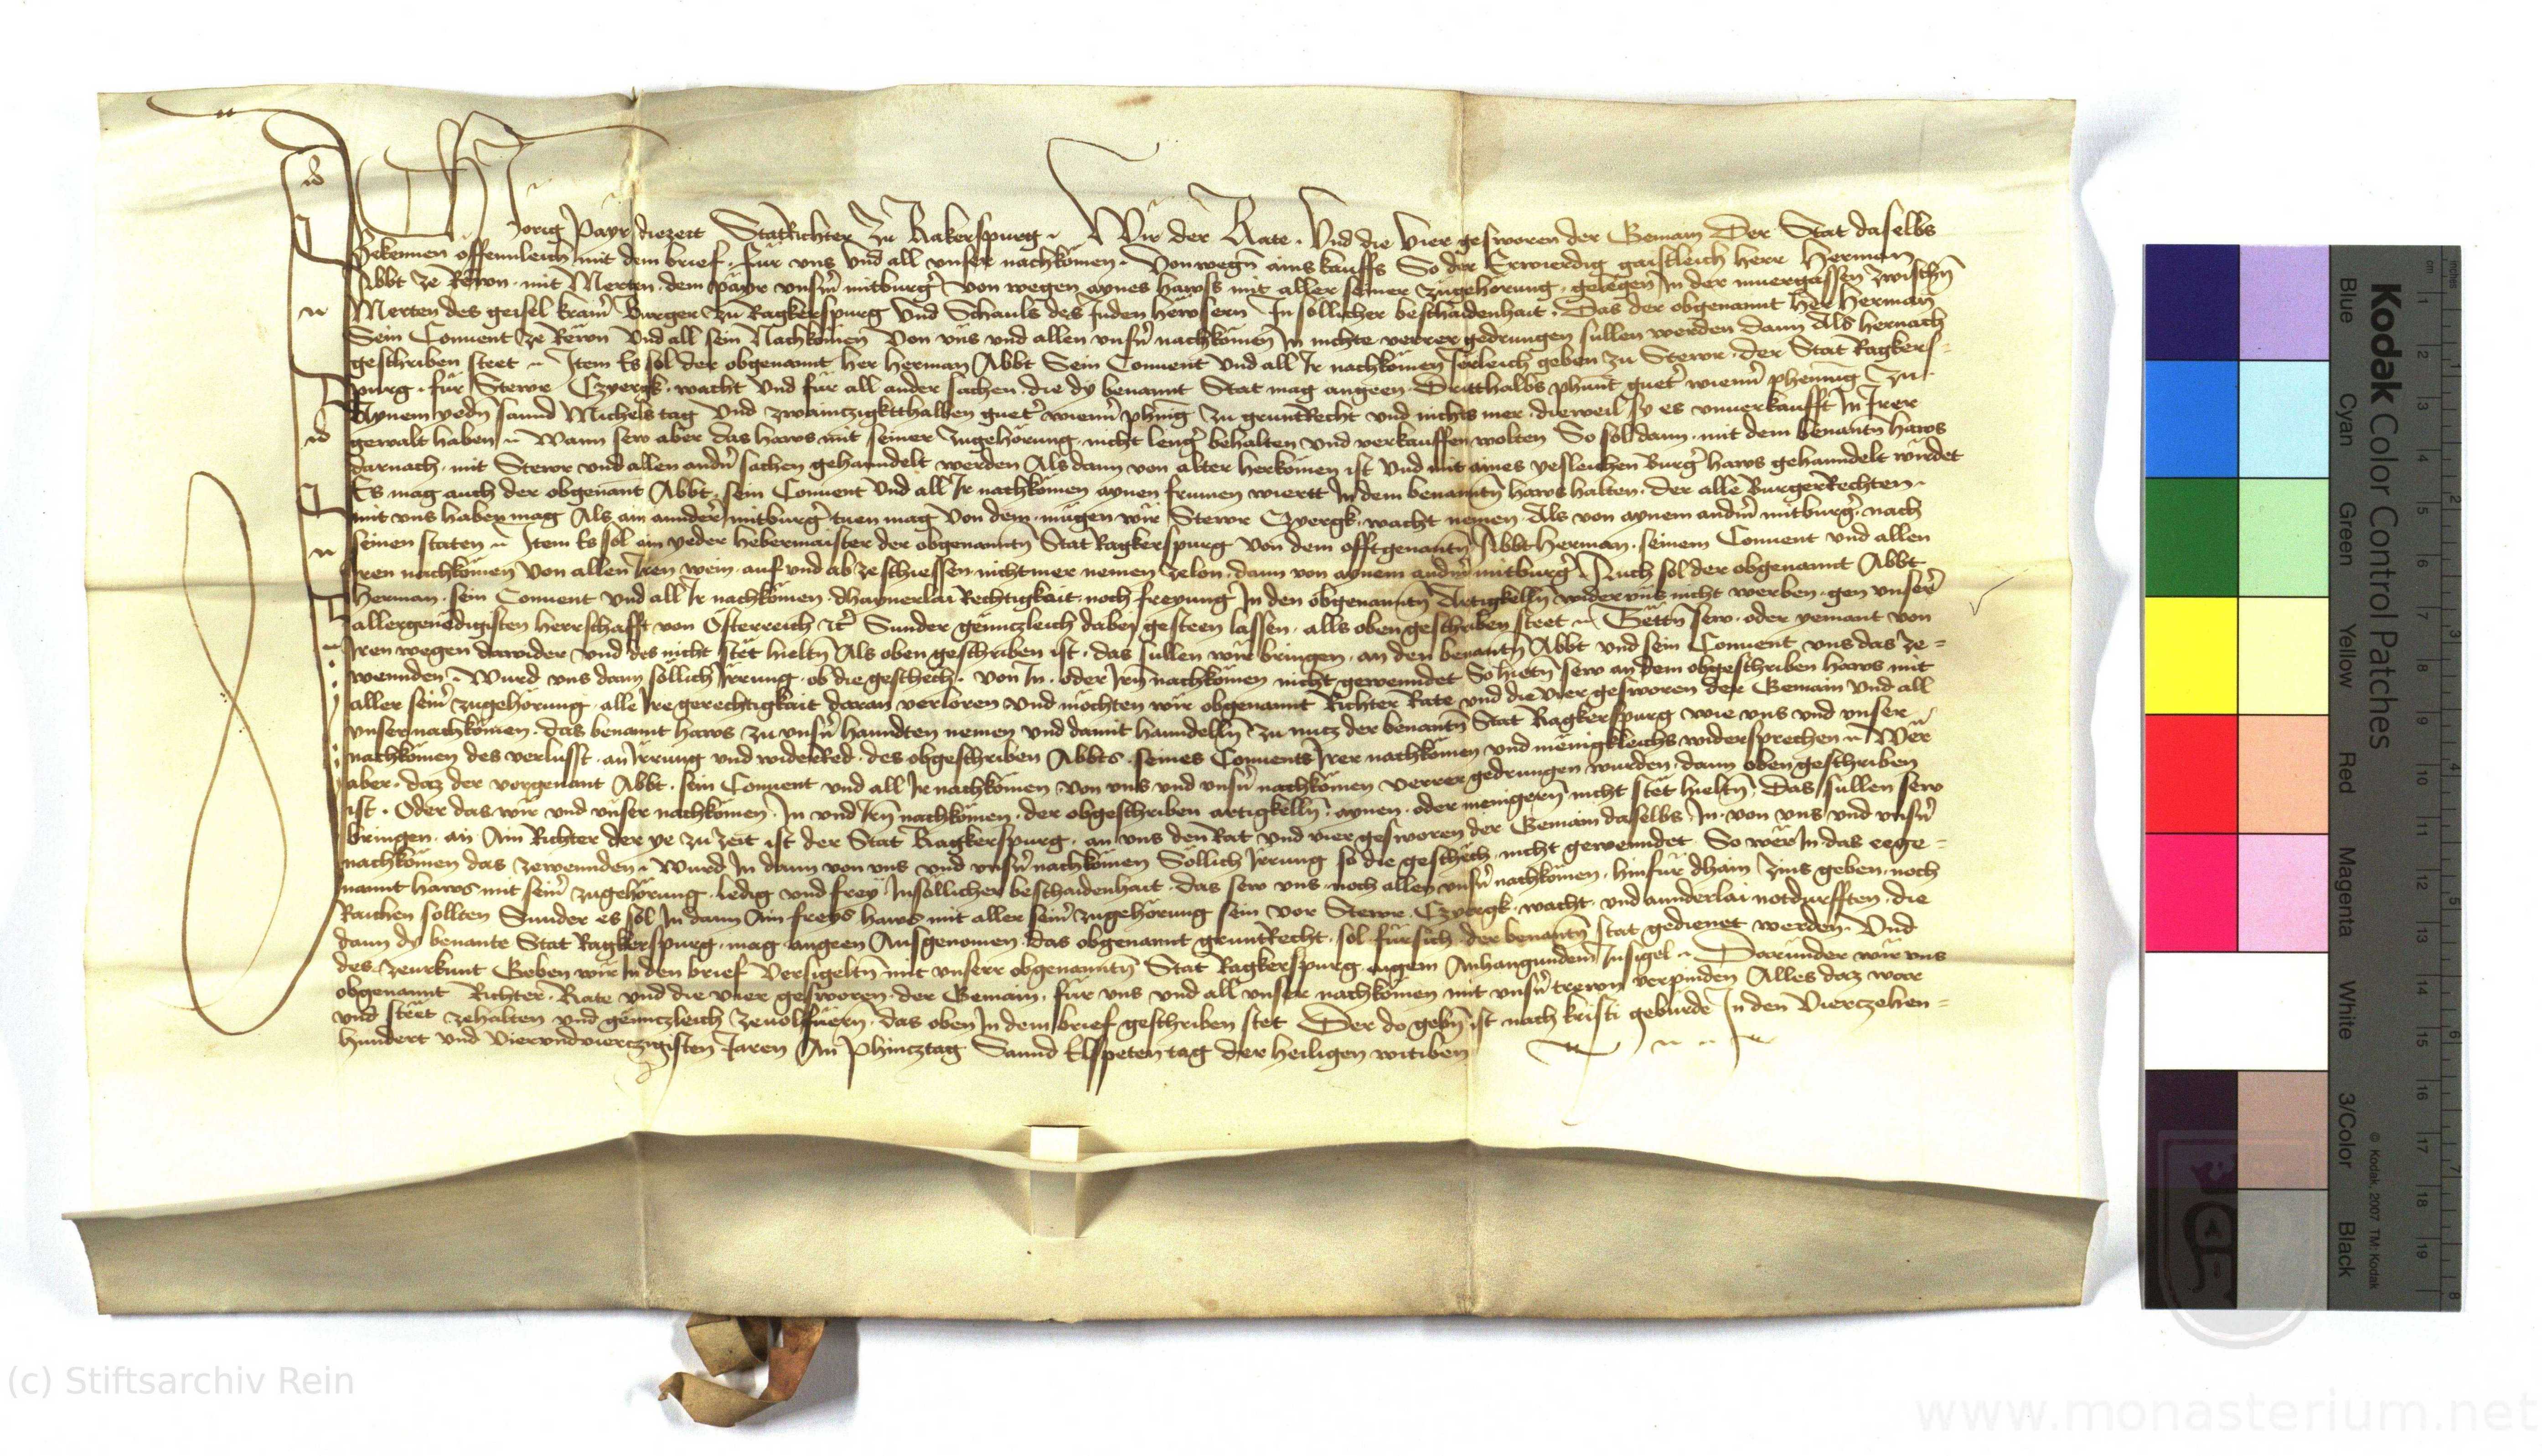 Ich Jorig Payr diezeit Statrichter Zu Rakerspurg Wir der Rate. Vnd die Vier gesworen der Gemain Der Stat daselbs
Bekennen offennleich mit dem brief. für vns Vnd all vnser nachkömen. Von wegn ains kauffs So der Erwierdig gaistleich herr Herman
Abbt ze Rewn. mit Merten. dem payr vnserm mitburger Von wegen aynes hawss mit aller seiner zugehörung. gelegen In der muergassen zwischn
Merten des geisel kramer Burger Zu Ragkerspurg Vnd Schauls des Juden hewsern In söllicher beschaidenhait. Das der obgenannt Her Herman
Sein Conuent ze Rewn Vnd all sein Nachkömen Von vns vnd allen vnsern nachkömen In nichte verrer gedrungen sullen werden dann Als hernach
geschriben steet Item Es sol der obgenannt her herman Abbt Sein Conuent Vnd all Ir nachkömen Jerleich geben zu Stewr. der Stat Ragkers-
purg. für Stewr Czyergk. wacht Vnd für all ander sachen. die dy benannt Stat mag angeen. Dritthalbs phunt gueter wienner phennig Zu
Aynem yedn sannd Michels tag Vnd zwainczigktthalben gueter wienner phennig Zu gruntRecht vnd nichts mer. dieweil sy es vnuerkaufft In Irer
gewalt haben Wann sew aber das haws mit seiner Zugehörung. nicht lenger behalten vnd verkauffen wolten So sol dann. mit dem benantn haws
darnach. mit Stewr vnd allen andern sachen gehanndelt werden Als dann von alter herkömen ist Vnd mit aines yesleichen Burger haws gehanndelt wirdet
Es mag auch der obgenant Abbt. sein Conuent Vnd all Ir nachkömen aynen frumen wiertt In dem benanntn haws halten. der alle BurgerRechten
mit vns haben mag Als ain annderer mitburger tuen mag Von dem. mügen wir Stewr Czyergk. wacht nemen. Als von aynem andern mitburger. nach
seinen staten Item Es sol ain yeder hebermaister der obgenanntn Stat Ragkerspurg Von dem offtgenantn Abbt Herman. seinem Conuent vnd allen
Iren nachkömen Von allen Iren wein. auf vnd ab ze schiessen. nicht mer nemen Zelon. dann von aynem andern mitburger. Auch sol der obgenannt Abbt
Herman. sein Conuent Vnd all Ir nachkömen. dhaynerlai Rechtigkait. noch freyung In den obgenanntn Artigkelln wider vns nicht werben. gen vnser
allergenedigisten Herrschafft von Österreich etc Sunder gennczleich dabey gesteen lassen. alls oben geschriben steet Tettn sew. oder yemant von
Iren wegen dawider vnd des nicht stet hieltn Als oben geschriben ist. das sullen wir bringen. an den benantn Abbt vnd sein Conuent vns das ze-
wennden. Wurd vns dann söllich Irrung. ob die geschech. von In. oder Irn nachkömen nicht gewenndet So hietn sew an dem obgeschriben haws. mit
aller seiner zugehörung. alle Ire gerechtigkait daran verloren Vnd möchten wir obgenannt Richter Rate vnd die vier gesworen der Gemain Vnd all
vnser nachkömen. das benannt haws zu vnsern hanndten nemen Vnd damit hanndelln Zu nucz der benantn Stat Ragkerspurg wie vns vnd vnser
nachkömen des verlusst. an Irrung vnd widerRed. des obgeschriben Abbts. seines Conuents Irer nachkömen vnd mënigkleichs widersprechen Wer
aber. daz der vorgenant Abbt. sein Conuent vnd all Ir nachkömen Von vns vnd vnsern nachkömen verrer gedrungen wurden. dann oben geschriben
ist. Oder das wir vnd vnser nachkömen. In vnd Irn nachkömen. der obgeschriben artigkelln. aynen. oder menigern nicht stet hieltn. Das sullen sew
bringen. an Ain Richter der ye zu zeit ist der Stat Ragkerspurg. an vns den Rat vnd vier gesworen der Gemain daselbs. In. von vns vnd vnsern
nachkömen das Zewennden. Wurd In dann von vns vnd vnsern nachkömen Söllich Irrung so die geschech. nicht gewenndet. So wer In das eege-
nannt haws mit seiner zugehörung. ledig vnd frey In söllicher beschaidenhait. das sew vns. noch allen vnsern nachkömen. hinfür dhain Zins geben. noch
Raichen sollten Sunder es sol In dann Ain freys haws. mit aller seiner zugehörung sein vor Stewr. Czyergk. wacht. vnd annderlai notdurfften. die
dann dy benante Stat Ragkerspurg. mag angeen Ausgenomen. das obgenannt gruntRecht. sol fürsich. der benantn stat gedienet werden. Vnd
des. Zeurkunt Geben wir In den brief Versigeltn mit vnserr obgenanntn Stat Ragkerspurg aigem Anhangundem Insigel Darunder wir vns
obgenannt Richter. Rate vnd die vier gesworen. der Gemain. für vns vnd all vnser nachkömen mit vnsern trewn verpinden Alles daz war
vnd stëet zehalten vnd gënnczleich zeuolfüern. das oben In dem brief geschriben stet Der do gebn ist nach kristi geburde In den Vierczehen-
hundert vnd Vierundvierczigisten Jaren An Phincztag Sannd Elspeten tag der heiligen witiben
Kodak Color Control Patches
Blue Cyan Green Yellow Red Magenta White 3/Color Black
© Kodak, 2007 TM: Kodak
cm 1 2 3 4 5 6 7 8 9 10 11 12 13 14 15 16 17 18 19
inches 1 2 3 4 5 6 7 8
(c) Stiftsarchiv Rein
www.monasterium.net